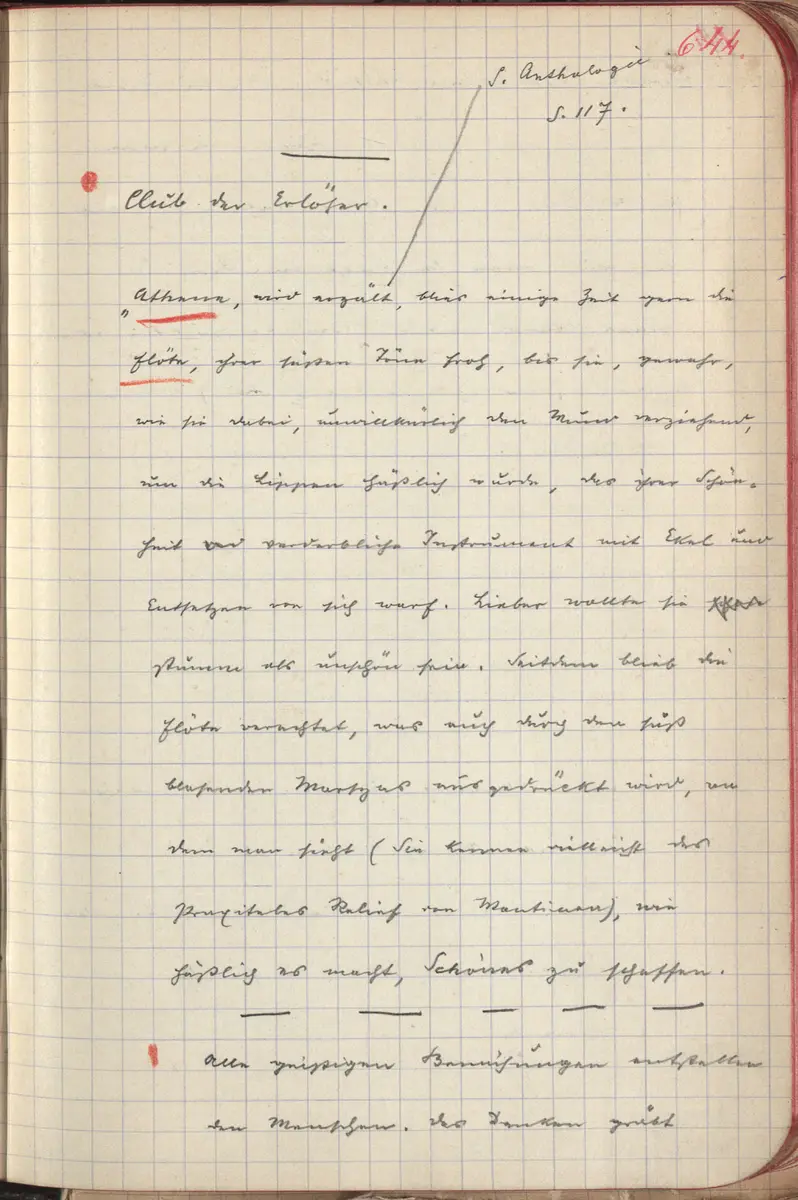 644.
S. Anthologie
S. 117.
Club der Erlöser.
„Athene, wird erzält, blies einige Zeit gern die
Flöte, ihrer süßen Töne froh, bis sie, gewahr,
wie sie dabei, unwillkürlich den Mund verziehend,
um die Lippen häßlich wurde, das ihrer Schön-
heit verderbliche Instrument mit Ekel und
Entsetzen von sich warf. Lieber wollte sie
stumm als unschön sein. Seitdem blieb die
Flöte verachtet, was auch durch den süß
blasenden Marsyas ausgedrückt wird, an
dem man sieht (Sie kennen vielleicht des
Praxiteles Relief von Mantinea), wie
häßlich es macht, Schönes zu schaffen.
Alle geistigen Bemühungen entstellen
den Menschen. Das Denken gräbt